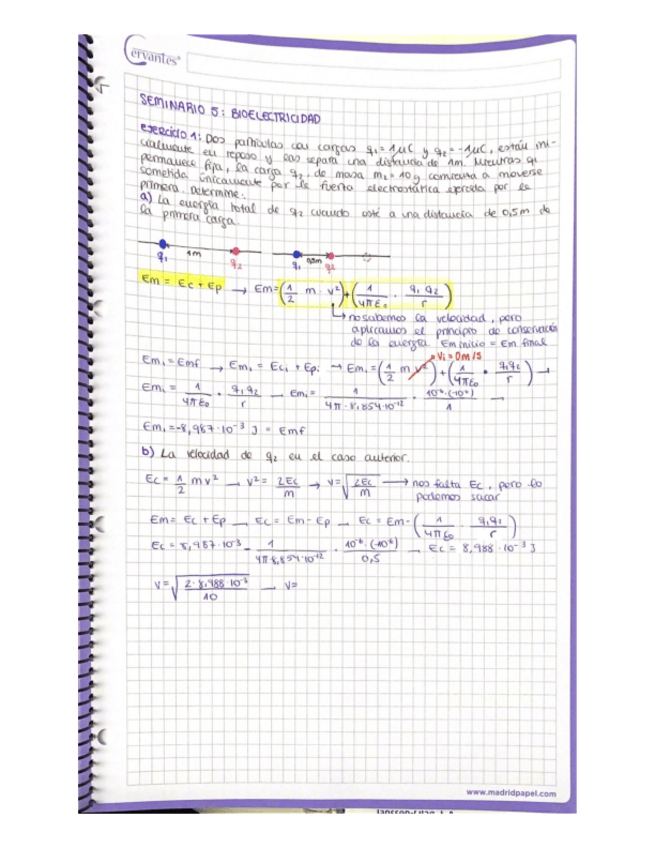 Cervantes®
SEMINARIO 5: BIOELECTRICIDAD
ejercicio 1: Dos partículas con cargas q₁= 1μC y q₂= -1μC, están ini-
cialmente en reposo y las separa una distancia de 1m. Mientras q₁
permanece fija, la carga q₂, de masa m₂= 10g comienza a moverse
sometida únicamente por la fuerza electrostática ejercida por la
primera. Determine:
a) La energía total de q₂ cuando esté a una distancia de 0,5m de
la primera carga.
1m 0,5m
q₁ q₂ q₁ q₂
Em = Ec + Ep → Em= (1/2 m · v²) + (1/4πε₀ · q₁ q₂/r)
↳ no sabemos la velocidad, pero
aplicamos el principio de conservación
de la energía Em inicio = Em final
Vi = 0m/s
Emᵢ = Emf → Emᵢ = Ecᵢ + Epᵢ → Emᵢ = (1/2 m v²) + (1/4πε₀ · q₁q₂/r) →
Emᵢ = 1/4πε₀ · q₁q₂/r → Emᵢ = 1/4π·8,854·10⁻¹² · 10⁻⁶·(-10⁻⁶)/1 →
Emᵢ = -8,987·10⁻³ J = Emf
b) La velocidad de q₂ en el caso anterior.
Ec = 1/2 mv² → v² = 2Ec/m → v= √2Ec/m → nos falta Ec, pero lo
podemos sacar
Em = Ec + Ep → Ec = Em - Ep → Ec = Em - (1/4πε₀ · q₁q₂/r)
Ec = 8,987·10⁻³ - 1/4π·8,854·10⁻¹² · 10⁻⁶·(-10⁻⁶)/0,5 → Ec = 8,988·10⁻³ J
v= √2·8,988·10⁻³/10 → v=
www.madridpapel.com